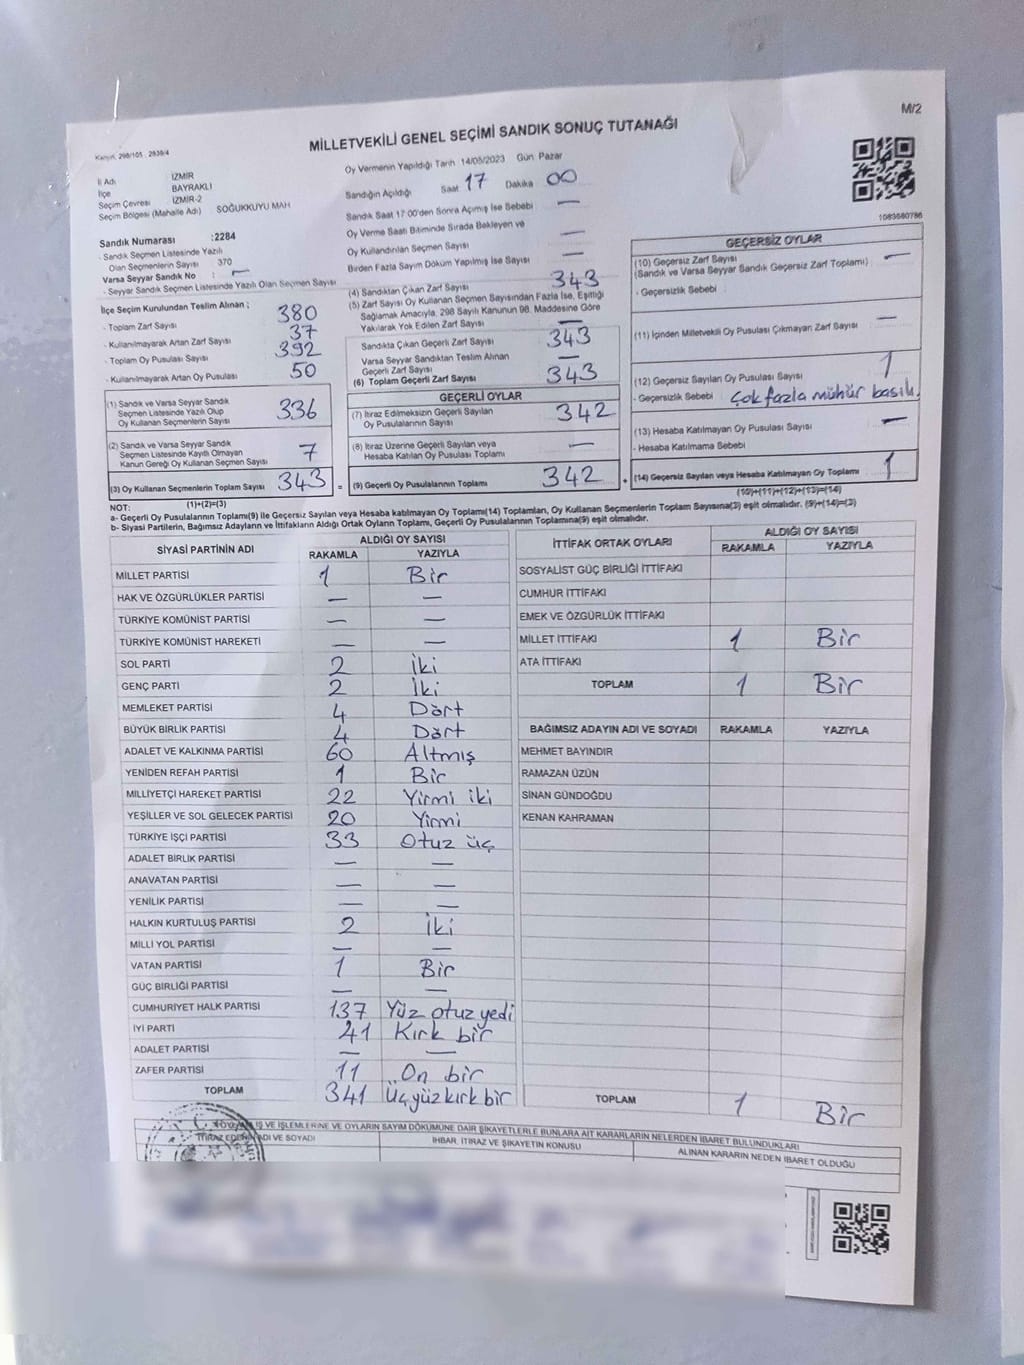 M/2
Kanun, 298/105 , 2839/4
MİLLETVEKİLİ GENEL SEÇİMİ SANDIK SONUÇ TUTANAĞI
İl Adı İZMİR
İlçe BAYRAKLI
Seçim Çevresi İZMİR-2
Seçim Bölgesi (Mahalle Adı) SOĞUKKUYU MAH
Sandık Numarası :2284
- Sandık Seçmen Listesinde Yazılı
Olan Seçmenlerin Sayısı 370
Varsa Seyyar Sandık No : —
- Seyyar Sandık Seçmen Listesinde Yazılı Olan Seçmen Sayısı
Oy Vermenin Yapıldığı Tarih 14/05/2023 Gün Pazar
Sandığın Açıldığı Saat 17 Dakika 00
Sandık Saat 17:00'den Sonra Açımış İse Sebebi —
Oy Verme Saati Bitiminde Sırada Bekleyen ve
Oy Kullandırılan Seçmen Sayısı —
Birden Fazla Sayım Döküm Yapılmış İse Sayısı —
1083580786
İlçe Seçim Kurulundan Teslim Alınan ;
- Toplam Zarf Sayısı 380
- Kullanılmayarak Artan Zarf Sayısı 37
- Toplam Oy Pusulası Sayısı 392
- Kullanılmayarak Artan Oy Pusulası 50
(1) Sandık ve Varsa Seyyar Sandık
Seçmen Listesinde Yazılı Olup
Oy Kullanan Seçmenlerin Sayısı 336
(2) Sandık ve Varsa Seyyar Sandık
Seçmen Listesinde Kayıtlı Olmayan
Kanun Gereği Oy Kullanan Seçmen Sayısı 7
(3) Oy Kullanan Seçmenlerin Toplam Sayısı 343 =
(4) Sandıktan Çıkan Zarf Sayısı 343
(5) Zarf Sayısı Oy Kullanan Seçmen Sayısından Fazla İse, Eşitliği
Sağlamak Amacıyla, 298 Sayılı Kanunun 98. Maddesine Göre
Yakılarak Yok Edilen Zarf Sayısı —
Sandıkta Çıkan Geçerli Zarf Sayısı 343
Varsa Seyyar Sandıktan Teslim Alınan
Geçerli Zarf Sayısı —
(6) Toplam Geçerli Zarf Sayısı 343
GEÇERLİ OYLAR
(7) İtiraz Edilmeksizin Geçerli Sayılan
Oy Pusulalarının Sayısı 342
(8) İtiraz Üzerine Geçerli Sayılan veya
Hesaba Katılan Oy Pusulası Toplamı —
(9) Geçerli Oy Pusulalarının Toplamı 342 +
GEÇERSİZ OYLAR
(10) Geçersiz Zarf Sayısı —
(Sandık ve Varsa Seyyar Sandık Geçersiz Zarf Toplamı)
- Geçersizlik Sebebi
(11) İçinden Milletvekili Oy Pusulası Çıkmayan Zarf Sayısı —
(12) Geçersiz Sayılan Oy Pusulası Sayısı 1
- Geçersizlik Sebebi Çok fazla mühür basılı.
(13) Hesaba Katılmayan Oy Pusulası Sayısı —
- Hesaba Katılmama Sebebi
(14) Geçersiz Sayılan veya Hesaba Katılmayan Oy Toplamı 1
NOT: (1)+(2)=(3) (10)+(11)+(12)+(13)=(14)
a- Geçerli Oy Pusulalarının Toplamı(9) ile Geçersiz Sayılan veya Hesaba katılmayan Oy Toplamı(14) Toplamları, Oy Kullanan Seçmenlerin Toplam Sayısına(3) eşit olmalıdır. (9)+(14)=(3)
b- Siyasi Partilerin, Bağımsız Adayların ve İttifakların Aldığı Ortak Oyların Toplamı, Geçerli Oy Pusulalarının Toplamına(9) eşit olmalıdır.
SİYASİ PARTİNİN ADI ALDIĞI OY SAYISI
RAKAMLA YAZIYLA
MİLLET PARTİSİ 1 Bir
HAK VE ÖZGÜRLÜKLER PARTİSİ — —
TÜRKİYE KOMÜNİST PARTİSİ — —
TÜRKİYE KOMÜNİST HAREKETİ — —
SOL PARTİ 2 İki
GENÇ PARTİ 2 İki
MEMLEKET PARTİSİ 4 Dört
BÜYÜK BİRLİK PARTİSİ 4 Dört
ADALET VE KALKINMA PARTİSİ 60 Altmış
YENİDEN REFAH PARTİSİ 1 Bir
MİLLİYETÇİ HAREKET PARTİSİ 22 Yirmi iki
YEŞİLLER VE SOL GELECEK PARTİSİ 20 Yirmi
TÜRKİYE İŞÇİ PARTİSİ 33 Otuz üç
ADALET BİRLİK PARTİSİ — —
ANAVATAN PARTİSİ — —
YENİLİK PARTİSİ — —
HALKIN KURTULUŞ PARTİSİ 2 İki
MİLLİ YOL PARTİSİ — —
VATAN PARTİSİ 1 Bir
GÜÇ BİRLİĞİ PARTİSİ — —
CUMHURİYET HALK PARTİSİ 137 Yüz otuz yedi
İYİ PARTİ 41 Kırk bir
ADALET PARTİSİ — —
ZAFER PARTİSİ 11 On bir
TOPLAM 341 Üçyüzkırk bir
İTTİFAK ORTAK OYLARI ALDIĞI OY SAYISI
RAKAMLA YAZIYLA
SOSYALİST GÜÇ BİRLİĞİ İTTİFAKI
CUMHUR İTTİFAKI
EMEK VE ÖZGÜRLÜK İTTİFAKI
MİLLET İTTİFAKI 1 Bir
ATA İTTİFAKI
TOPLAM 1 Bir
BAĞIMSIZ ADAYIN ADI VE SOYADI RAKAMLA YAZIYLA
MEHMET BAYINDIR
RAMAZAN ÜZÜN
SİNAN GÜNDOĞDU
KENAN KAHRAMAN
TOPLAM 1 Bir
İŞ VE İŞLEMLERİNE VE OYLARIN SAYIM DÖKÜMÜNE DAİR ŞİKAYETLERLE BUNLARA AİT KARARLARIN NELERDEN İBARET BULUNDUKLARI
İTİRAZ EDENİN ADI VE SOYADI İHBAR, İTİRAZ VE ŞİKAYETİN KONUSU ALINAN KARARIN NEDEN İBARET OLDUĞU